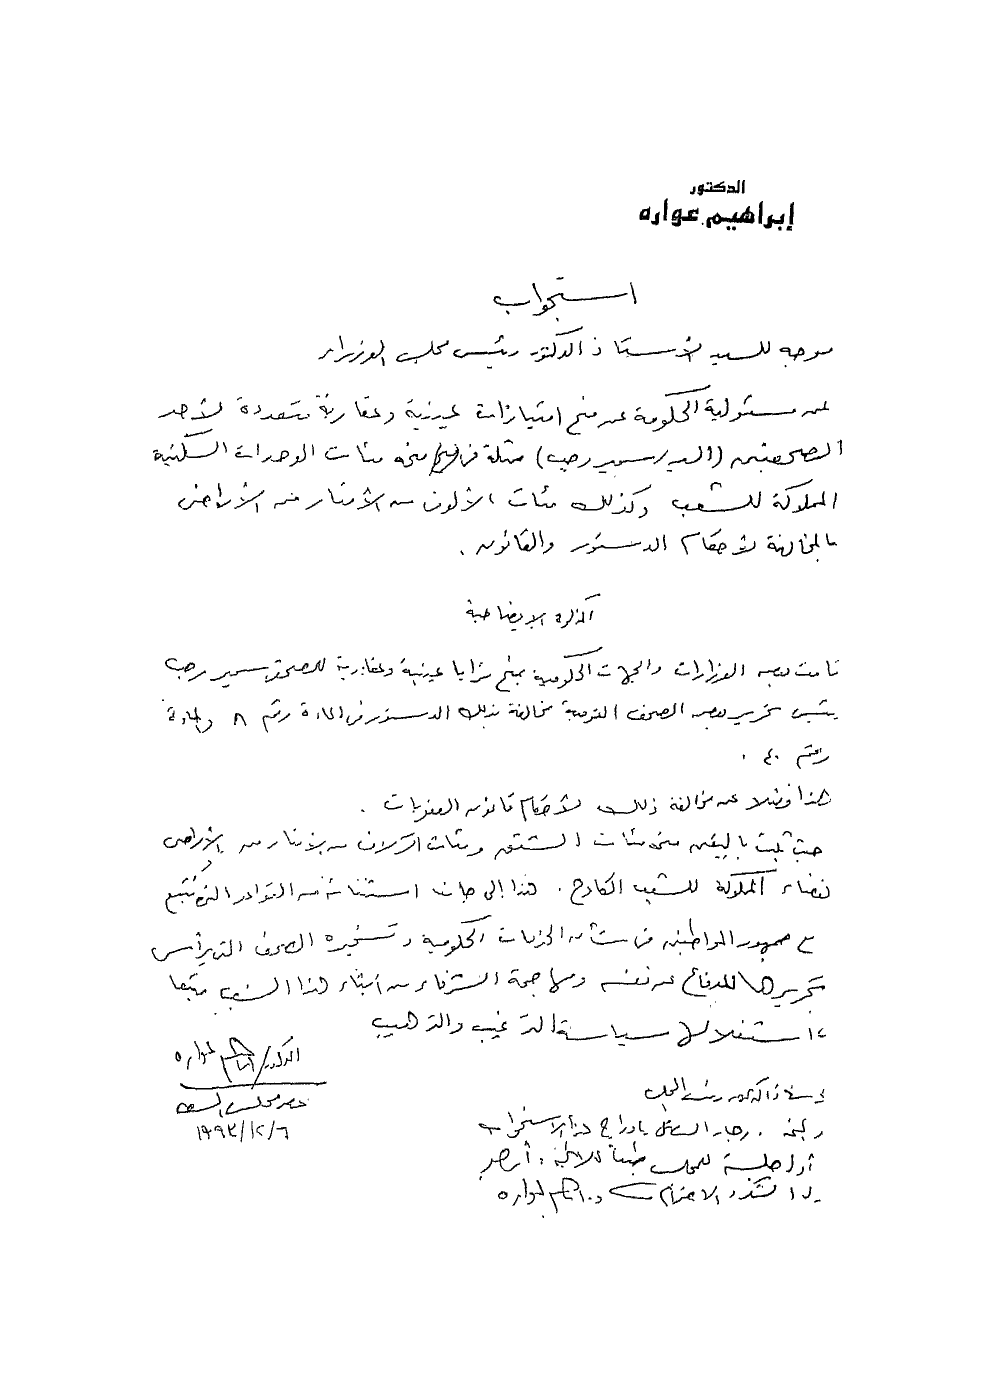 الدكتور
إبراهيم عواره
استجواب
موجه للسيد الأستاذ الدكتور رئيس مجلس الوزراء
عن مسئولية الحكومة عن منح امتيازات عينية وعقارية متعددة لأحد
الصحفيين (السيد/ سمير رجب) متمثلة في منحه مئات الوحدات السكنية
المملوكة للشعب وكذلك مئات الألوف من الأمتار من الأراضى
بالمخالفة لأحكام الدستور والقانون .
المذكرة الإيضاحية
قامت بعض الوزارات والجهات الحكومية بمنح مزايا عينية وعقارية للصحفى سمير رجب
رئيس تحرير بعض الصحف القومية مخالفة بذلك الدستور في المادة رقم ٨ والمادة
رقم ٤٠ .
هذا فضلا عن مخالفة ذلك لأحكام قانون العقوبات .
حيث ثبت باليقين منحه مئات الشقق ومئات الآلاف من الأمتار من الأراضى
الفضاء المملوكة للشعب الكادح . هذا إلى جانب استثنائه من القواعد التى تتبع
مع جمهور المواطنين في شأن الخدمات الحكومية وتسخيره الصحف التى يرأس
تحريرها للدفاع عن نفسه ومهاجمة الشرفاء من أبناء هذا الشعب متبعا
استغلالها سياسة الترغيب والترهيب
الدكتور/ إبراهيم عواره
عضو مجلس الشعب
١٩٩٣/١٢/٦
الأستاذ الدكتور رئيس المجلس
برجاء التفضل بإدراج هذا الاستجواب
أول جلسة للمجلس طبقا للائحة .
الشكر الاحترام د. إبراهيم عواره